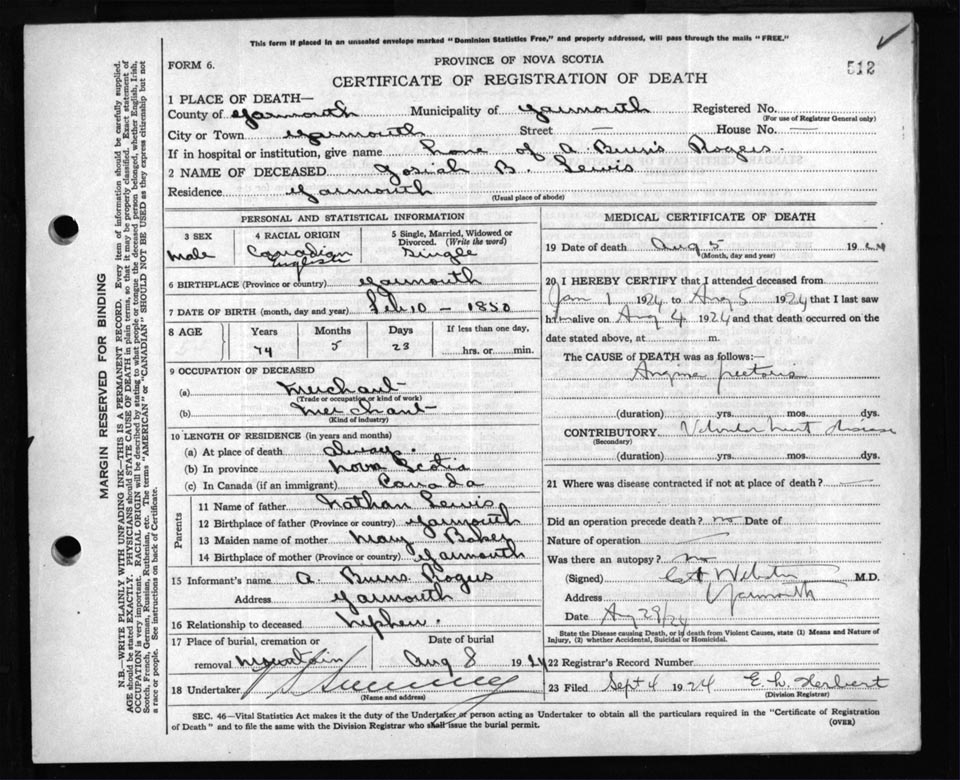 This form if placed in an unsealed envelope marked "Dominion Statistics Free," and properly addressed, will pass through the mails "FREE."
FORM 6.
PROVINCE OF NOVA SCOTIA
512
CERTIFICATE OF REGISTRATION OF DEATH
1 PLACE OF DEATH—
County of Yarmouth Municipality of Yarmouth Registered No.
(For use of Registrar General only)
City or Town Yarmouth Street — House No. —
If in hospital or institution, give name home of A Burns Rogers.
2 NAME OF DECEASED Josiah B. Lewis
Residence Yarmouth
(Usual place of abode)
PERSONAL AND STATISTICAL INFORMATION
3 SEX
male
4 RACIAL ORIGIN
Canadian
English
5 Single, Married, Widowed or
Divorced. (Write the word)
Single
6 BIRTHPLACE (Province or country) Yarmouth
7 DATE OF BIRTH (month, day and year) Feb 10 – 1850
8 AGE
Years Months Days If less than one day,
74 5 23 hrs. or min.
9 OCCUPATION OF DECEASED
(a) Merchant
(Trade or occupation or kind of work)
(b) Merchant
(Kind of industry)
10 LENGTH OF RESIDENCE (in years and months)
(a) At place of death always.
(b) In province Nova Scotia
(c) In Canada (if an immigrant) Canada
Parents
11 Name of father Nathan Lewis
12 Birthplace of father (Province or country) Yarmouth
13 Maiden name of mother Mary Baker
14 Birthplace of mother (Province or country) Yarmouth
15 Informant's name A. Burns Rogers
Address Yarmouth
16 Relationship to deceased Nephew.
17 Place of burial, cremation or
removal Mountain
Date of burial
Aug 8 1924
18 Undertaker
(Name and address)
MEDICAL CERTIFICATE OF DEATH
19 Date of death Aug 5 1924
(Month, day and year)
20 I HEREBY CERTIFY that I attended deceased from
Jan 1 1924 to Aug 5 1924 that I last saw
him alive on Aug 4 1924 and that death occurred on the
date stated above, at m.
The CAUSE of DEATH was as follows:—
Angina pectoris
(duration) yrs. mos. dys.
CONTRIBUTORY Valvular heart disease
(Secondary)
(duration) yrs. mos. dys.
21 Where was disease contracted if not at place of death? —
Did an operation precede death? no Date of
Nature of operation
Was there an autopsy? no
(Signed) Webster M.D.
Address Yarmouth
Date Aug 29/24
State the Disease causing Death, or in death from Violent Causes, state (1) Means and Nature of
Injury, (2) whether Accidental, Suicidal or Homicidal.
22 Registrar's Record Number
23 Filed Sept 4 1924 E. W. Herbert
(Division Registrar)
SEC. 46—Vital Statistics Act makes it the duty of the Undertaker or person acting as Undertaker to obtain all the particulars required in the "Certificate of Registration
of Death" and to file the same with the Division Registrar who shall issue the burial permit.
(OVER)
MARGIN RESERVED FOR BINDING
N.B.—WRITE PLAINLY WITH UNFADING INK—THIS IS A PERMANENT RECORD. Every item of information should be carefully supplied.
AGE should be stated EXACTLY. PHYSICIANS should STATE CAUSE OF DEATH in plain terms, so that it may be properly classified. Exact statement of
OCCUPATION is very important. RACIAL ORIGIN will be described by stating to what people or tongue the deceased person belonged, whether English, Irish,
Scotch, French, German, Russian, Ruthenian, etc. The terms "AMERICAN" or "CANADIAN" SHOULD NOT BE USED as they express citizenship but not
a race or people. See instructions on back of Certificate.